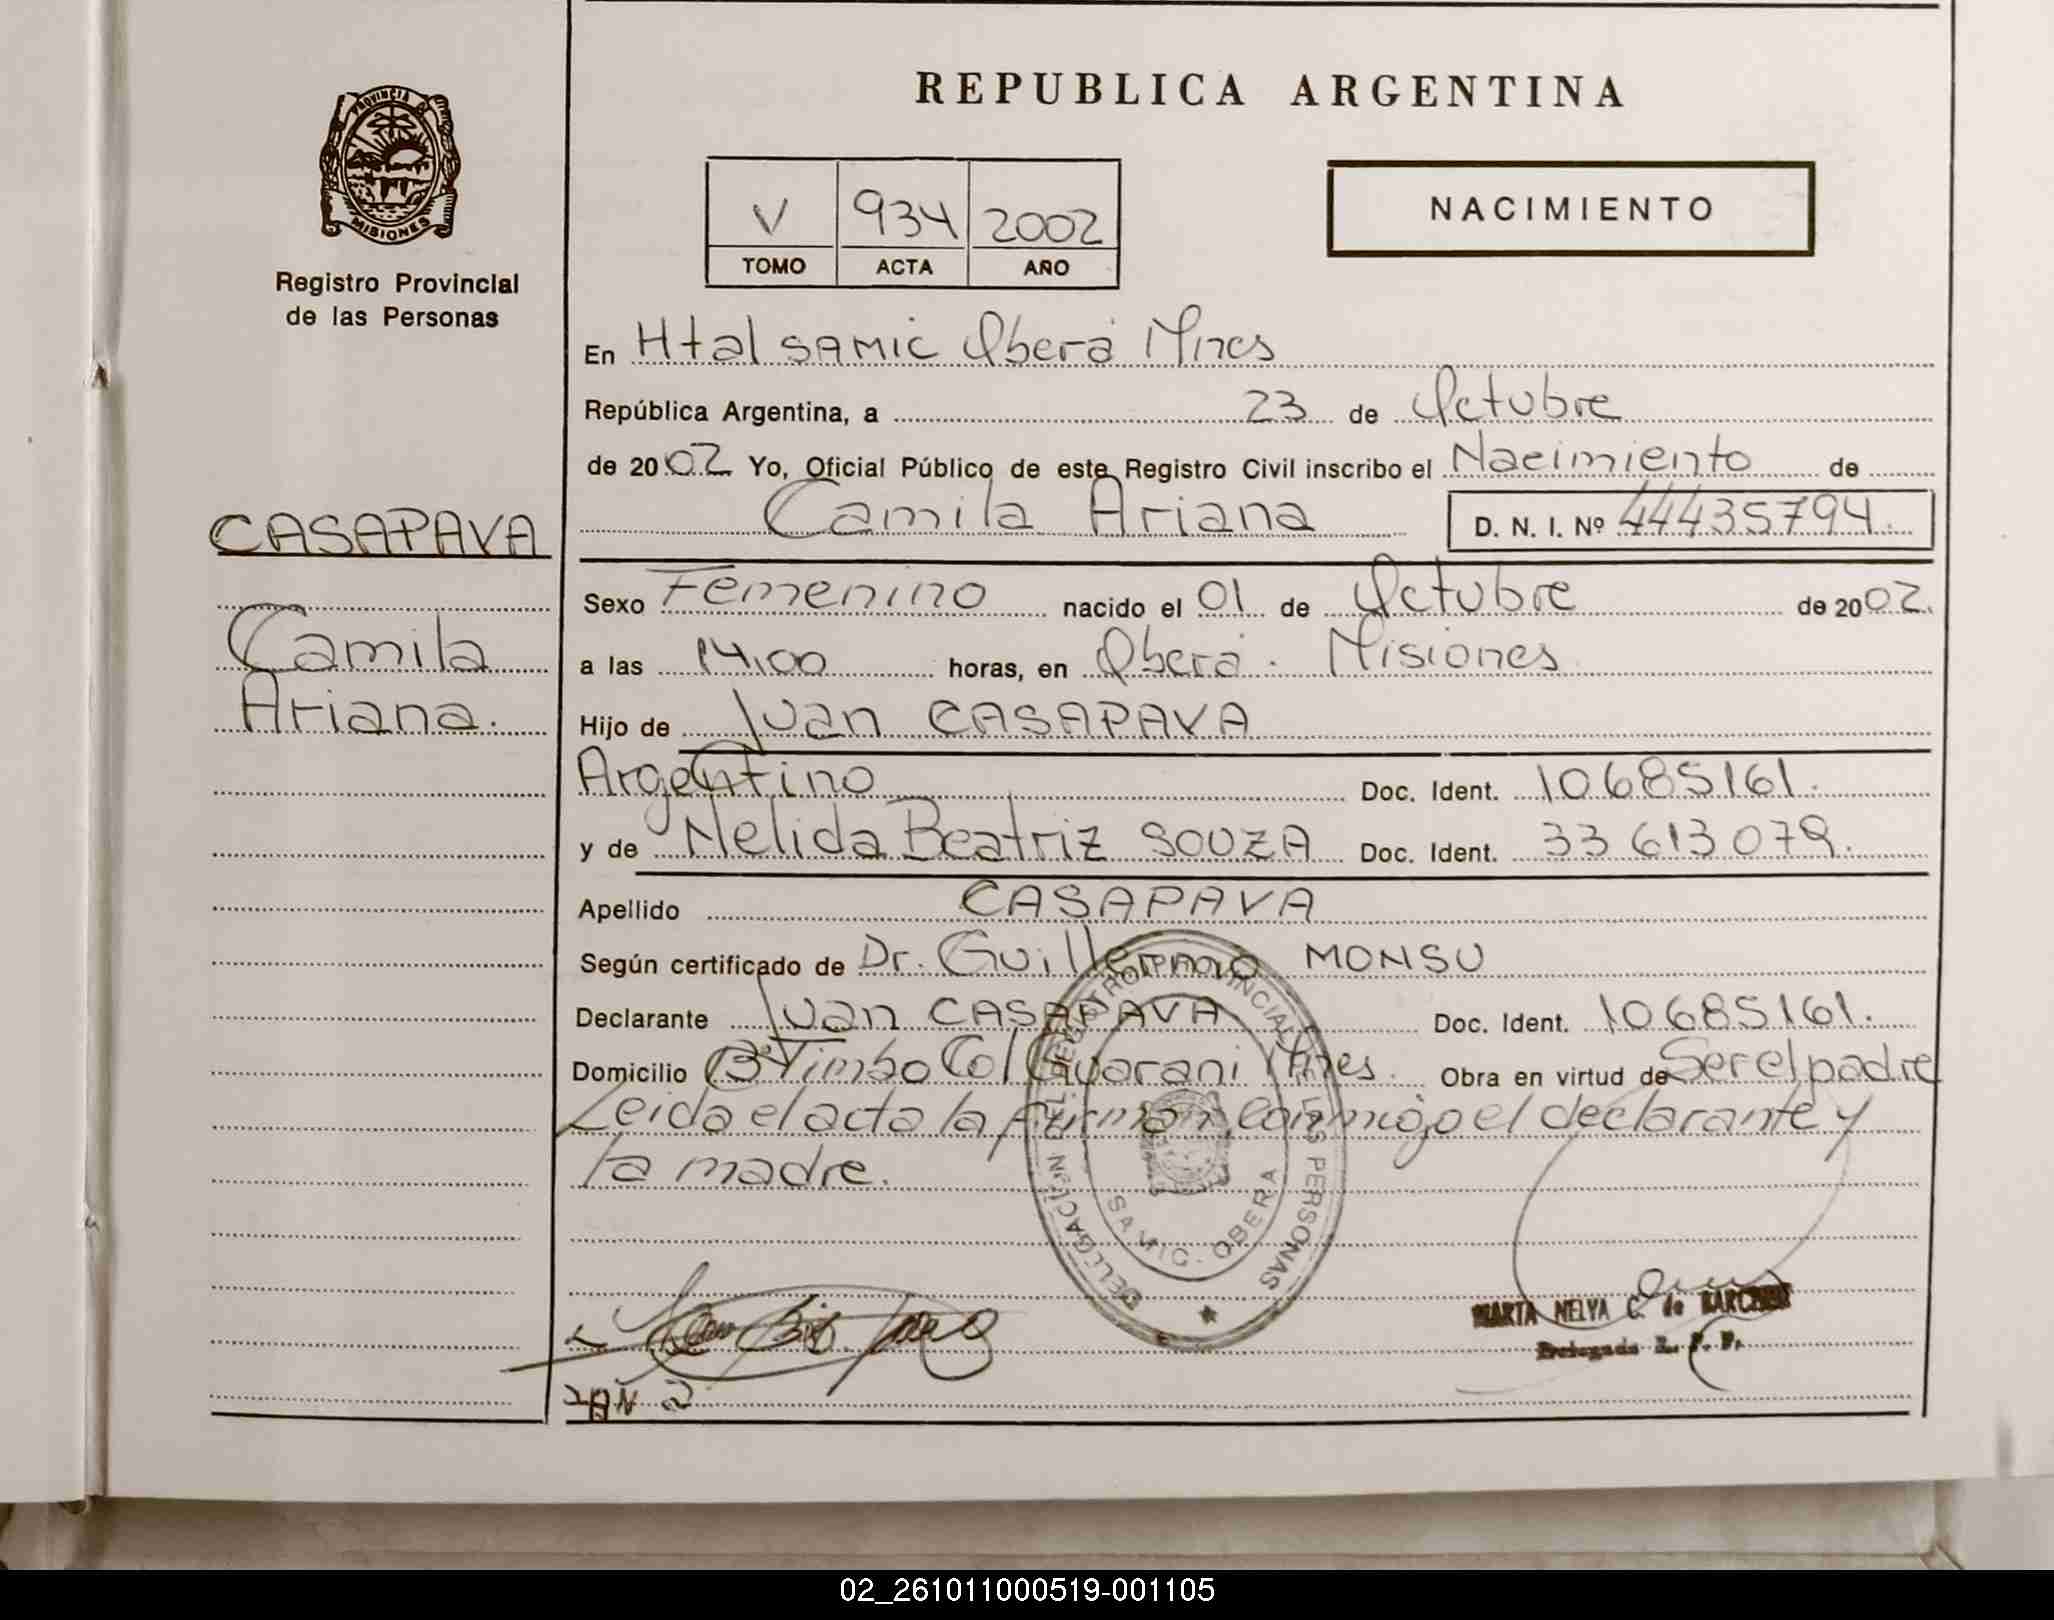 REPUBLICA ARGENTINA
PROVINCIA DE
MISIONES
Registro Provincial
de las Personas
V 934 2002
TOMO ACTA AÑO
NACIMIENTO
En Htal SAMIC Oberá Mnes
República Argentina, a 23 de Octubre
de 2002 Yo, Oficial Público de este Registro Civil inscribo el Nacimiento de
Camila Ariana D. N. I. Nº 44435794.
CASAPAVA
Camila
Ariana.
Sexo Femenino nacido el 01 de Octubre de 2002.
a las 14,00 horas, en Oberá. Misiones
Hijo de Juan CASAPAVA
Argentino Doc. Ident. 10685161.
y de Nelida Beatriz SOUZA Doc. Ident. 33 613 079.
Apellido CASAPAVA
Según certificado de Dr. Guillermo MONSU
Declarante Juan CASAPAVA Doc. Ident. 10685161.
Domicilio Bº Timbo Col Guarani Mnes. Obra en virtud de Ser el padre
Leida el acta la firman conmigo el declarante y
la madre.
REGISTRO PROVINCIAL DE LAS PERSONAS
DELEGACION Nº
SAMIC. OBERA
MARTA NELYA C. de
Delegada R. P. P.
02_261011000519-001105